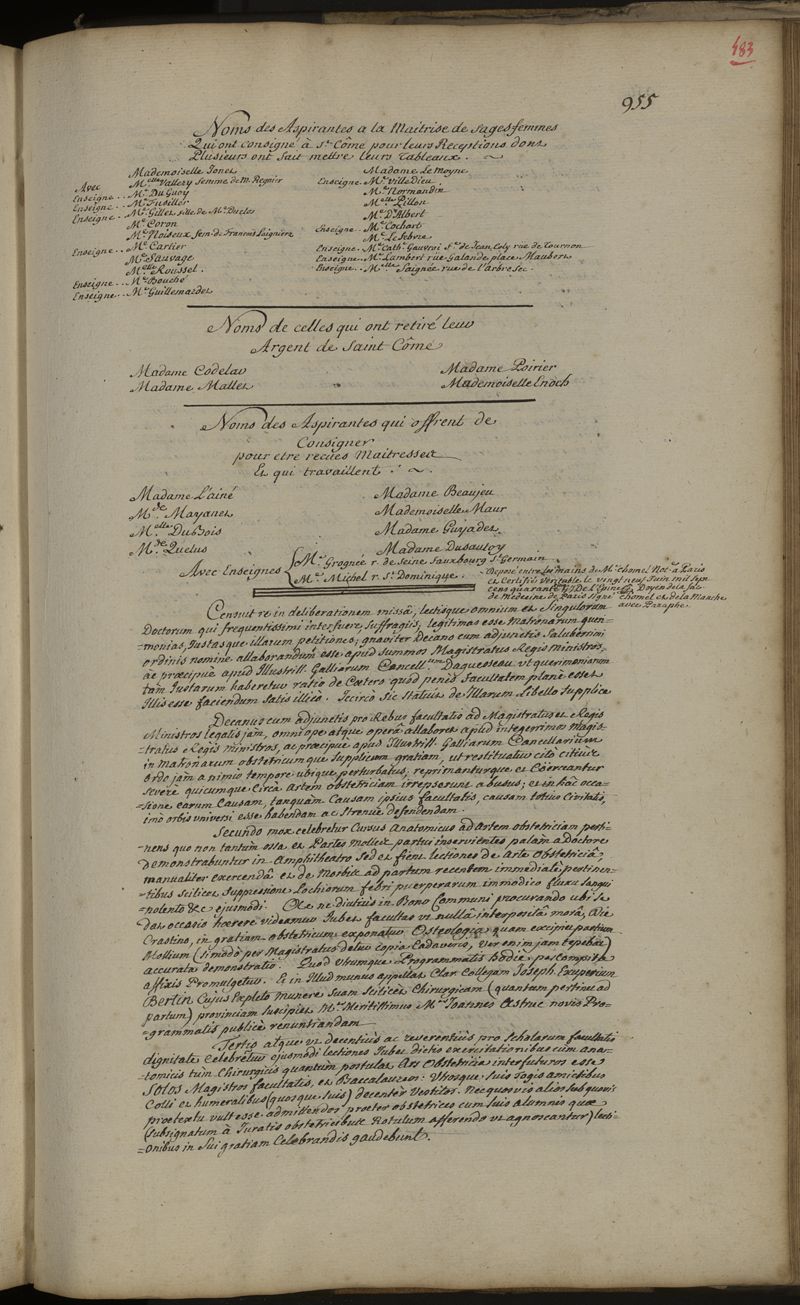 483
955
Noms des Aspirantes a la Maitrise de Sagesfemmes
Qui ont consigné à St Côme pour leurs Receptions dont
Plusieurs ont fait mettre leurs Tableaux.
Mademoiselle Jones
Avec Melle Vallery femme de M. Regnier
Enseigne.. Me Du Guoy
Enseigne.. Me Fusillier
Enseigne.. Me Gillet, fille de Me Duclos
Me Coron
Me Noiseux fem. de Francois Laigniere
Enseigne... Me Cartier
Me Sauvage
Melle Roussel.
Enseigne... Me Bouché
Enseigne... Me Guillemardet
Madame Le Moyne
Enseigne. Me Ville Dieu
Me Normandin
Melle Pillon
Me D'Albert
Enseigne.. Me Cochart
Me Le febvre
Enseigne. Me Cath. Gauvrai fe de Jean Coly rue de Tournon
Enseigne.. Me Lambert rue Galande place Maubert
Enseigne.. Melle Saignée rue de l'arbre sec.
Noms de celles qui ont retiré leur
Argent de Saint Côme
Madame Codelar
Madame Mallet
Madame Poirier
Mademoiselle Enoch
Noms des Aspirantes qui offrent de
Consigner
pour etre recues Maitresses
Et qui travaillent.
Madame L'ainé
Mde Mayanet
Melle DuBois
Mde Quelus
Madame Beaujeu
Mademoiselle Maur
Madame Guyadet
Madame Dusautoy
Avec Enseignes
Me Grognée r. de Seine fauxbourg St Germain
Me Michel r. St Dominique.
Deposé entre les mains de Me Chomel Notre a Paris
et Certifié Veritable le vingt neuf Juin mil sept
cens quarante De l'Epine Doyen de la fac.
de Médecine de Paris signé Chomel et de la Manche
avec Paraphe.
Censuit re in deliberationem missâ, lectisque omnium et singulorum
Doctorum qui frequentissimi interfuere, Suffragiis, legitimas esse matronarum queri-
=monias, Justasque illarum petitiones; gnaviter Decano cum adjunctis Saluberrimi
ordinis nomine allaborandum esse apud summos Magistratus Regis Ministros,
ac praecipuè apud Illustriss. Galliarum Cancell.um Daguesseau ut querimoniarum
tam Justarum haberetur ratio de Coetero quod penès facultatem planè esset
Illis esse faciendum Satis illicò. Iccircò Sic Statuit de Illarum Libello Supplice
Decanus cum adjunctis pro Rebus facultatis ad Magistratus et Regis
Ministros legatis jam, omni ope atque operâ allaboret apud integerrimos Magis-
=tratus Regis ministros, ac praecipue apud Illustriss. Galliarum Cancellarium
in Matronarum obstetricumque Supplicem gratiam, ut restituatur citò citiùs
ordo jam a nimio tempore ubique perturbatus, reprimanturque et Coerceantur
Severè quicumque Circà Artem obstetriciam irrepserunt abusus; et in hâc occa-
=sione earum Causam, tanquàm Causam ipsius facultatis, causam totius Civitatis,
imò orbis universi esse habendam ac Strenuè defendendam.
Secundò mox celebretur Cursus Anatomicus ad Artem obstetriciam perti-
nens quo non tantùm ossa et Partes molles partui inservientes palam a Doctore
Demonstrabuntur in Amphitheatro Sed et fient lectiones de Arte Obstetriciâ
manualiter exercendâ et de Morbis ad partum recentem immediatè pertinen-
=tibus scilicet suppressione Lochiorum febri puerperarum immodico fluxu Sangui
=nolento &c ejusmodi. At ne diutiùs in Bono Communi procurando ubi se
dat occasio hoerere videamur Jubet facultas ut nullâ interpositâ morâ, Die
Crastino, in gratiam obstetricum exponatur Osteologia quam excipiet partium
Mollium (si modò per Magistratus detur copia Cadaveris, Ver enim jam tepebat)
accurata demonstratio. Quod utrumque Programmatis hodiè per Compita
affixis Promulgetur. Et in Illud munus appellat Clar. Collegam Joseph. Exuperium
Bertin Cujus Expleto Munere Suam Scilicet Chirurgicam (quantum pertinet ad
partum) provinciam suscipiet Mr Meritissimus Mr Joannes Astruc novis Pro-
=grammatis publicè renuntiandam
Tertiò atque ut decentiùs ac reverentiùs pro Scholarum facultatis
dignitate Celebretur ejusmodi lectiones Jubet dictis exercitationibus cùm ana-
tomicis tùm Chirurgicis quantùm postulat Ars Obstetricia interfuturos esse
Solos Magistros facultatis, et Baccalaureos. Utrosque suis Togis amictibus
Colli et humeralibus (quosque suis) decenter Vestitos. Nec quosvis alios sub quovis
proetextu vult esse admittendos praeter obstetrices cum Suis alumnis quae
(subsignatum à Juratis obstetricibus Rotulum afferendo ut agnoscantur) lecti-
=onibus in Sui gratiam Celebrandis gaudebunt.